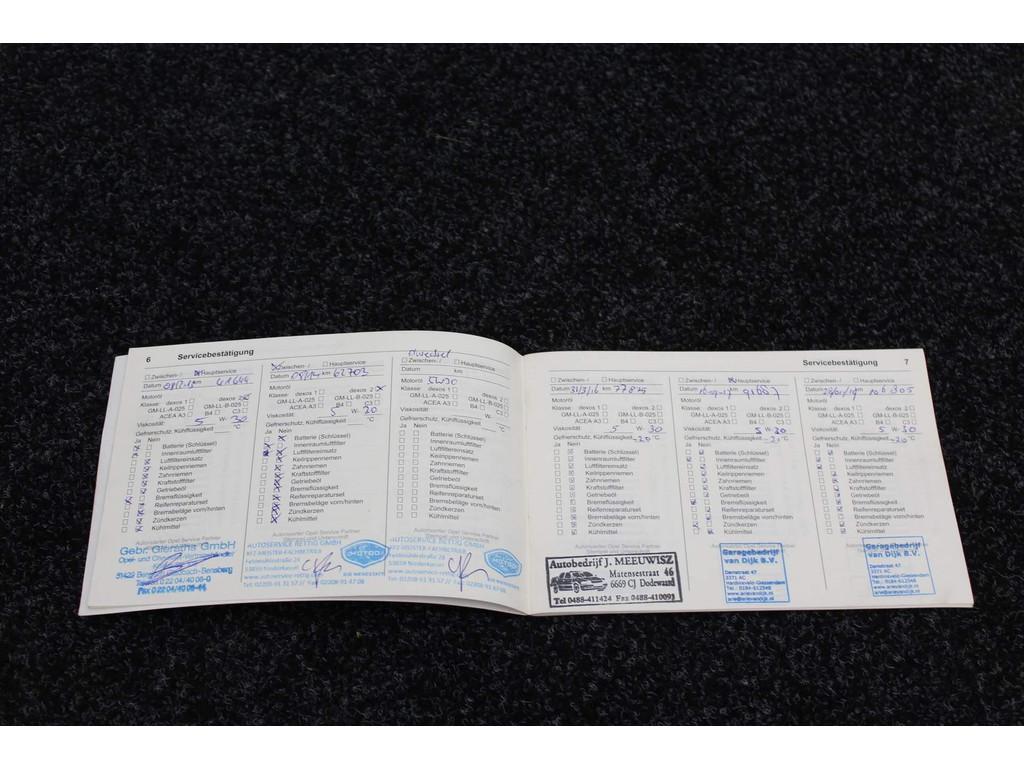 6 Servicebestätigung
Zwischen- / Hauptservice
Datum km 41644
Motoröl
Klasse: dexos 1 dexos 2
GM-LL-A-025 GM-LL-B-025
ACEA A3 B4 C3
Viskosität: 5 W- 30
Gefrierschutz, Kühlflüssigkeit: °C
Ja Nein
Batterie (Schlüssel)
Innenraumluftfilter
Luftfiltereinsatz
Keilrippenriemen
Zahnriemen
Kraftstofffilter
Getriebeöl
Bremsflüssigkeit
Reifenreparaturset
Bremsbeläge vorn/hinten
Zündkerzen
Kühlmittel
Autorisierter Opel Service Partner
Gebr. Gieraths GmbH
Zwischen- / Hauptservice
Datum km 62703
Motoröl
Klasse: dexos 1 dexos 2
GM-LL-A-025 GM-LL-B-025
ACEA A3 B4 C3
Viskosität: 5 W- 20
Gefrierschutz, Kühlflüssigkeit: °C
Ja Nein
Batterie (Schlüssel)
Innenraumluftfilter
Luftfiltereinsatz
Keilrippenriemen
Zahnriemen
Kraftstofffilter
Getriebeöl
Bremsflüssigkeit
Reifenreparaturset
Bremsbeläge vorn/hinten
Zündkerzen
Kühlmittel
Autorisierter Opel Service Partner
AUTOSERVICE RETTIG GMBH
KFZ-MEISTER-FACHBETRIEB
Zwischen- / Hauptservice
Datum km
Motoröl 5W30
Klasse: dexos 1 dexos 2
GM-LL-A-025 GM-LL-B-025
ACEA A3 B4 C3
Viskosität: W-
Gefrierschutz, Kühlflüssigkeit: °C
Ja Nein
Batterie (Schlüssel)
Innenraumluftfilter
Luftfiltereinsatz
Keilrippenriemen
Zahnriemen
Kraftstofffilter
Getriebeöl
Bremsflüssigkeit
Reifenreparaturset
Bremsbeläge vorn/hinten
Zündkerzen
Kühlmittel
Autorisierter Opel Service Partner
AUTOSERVICE RETTIG GMBH
KFZ-MEISTER-FACHBETRIEB
Servicebestätigung 7
Zwischen- / Hauptservice
Datum 31/3/16 km 77875
Motoröl
Klasse: dexos 1 dexos 2
GM-LL-A-025 GM-LL-B-025
ACEA A3 B4 C3
Viskosität: 5 W- 30
Gefrierschutz, Kühlflüssigkeit: -20 °C
Ja Nein
Batterie (Schlüssel)
Innenraumluftfilter
Luftfiltereinsatz
Keilrippenriemen
Zahnriemen
Kraftstofffilter
Getriebeöl
Bremsflüssigkeit
Reifenreparaturset
Bremsbeläge vorn/hinten
Zündkerzen
Kühlmittel
Autorisierter Opel Service Partner
Autobedrijf J. MEEUWISZ
Matensestraat 46
6669 CJ Dodewaard
Tel 0488-411424 Fax 0488-410093
Zwischen- / Hauptservice
Datum km
Motoröl
Klasse: dexos 1 dexos 2
GM-LL-A-025 GM-LL-B-025
ACEA A3 B4 C3
Viskosität: 5 W- 30
Gefrierschutz, Kühlflüssigkeit: -20 °C
Ja Nein
Batterie (Schlüssel)
Innenraumluftfilter
Luftfiltereinsatz
Keilrippenriemen
Zahnriemen
Kraftstofffilter
Getriebeöl
Bremsflüssigkeit
Reifenreparaturset
Bremsbeläge vorn/hinten
Zündkerzen
Kühlmittel
Autorisierter Opel Service Partner
Garagebedrijf
van Dijk B.V.
Damstraat 47
3371 AC
Hardinxveld-Giessendam
Tel.: 0184-612548
www.arievandijk.nl
Zwischen- / Hauptservice
Datum km 106305
Motoröl
Klasse: dexos 1 dexos 2
GM-LL-A-025 GM-LL-B-025
ACEA A3 B4 C3
Viskosität: 5 W- 30
Gefrierschutz, Kühlflüssigkeit: -20 °C
Ja Nein
Batterie (Schlüssel)
Innenraumluftfilter
Luftfiltereinsatz
Keilrippenriemen
Zahnriemen
Kraftstofffilter
Getriebeöl
Bremsflüssigkeit
Reifenreparaturset
Bremsbeläge vorn/hinten
Zündkerzen
Kühlmittel
Autorisierter Opel Service Partner
Garagebedrijf
van Dijk B.V.
Damstraat 47
3371 AC
Hardinxveld-Giessendam
Tel.: 0184-612548
www.arievandijk.nl